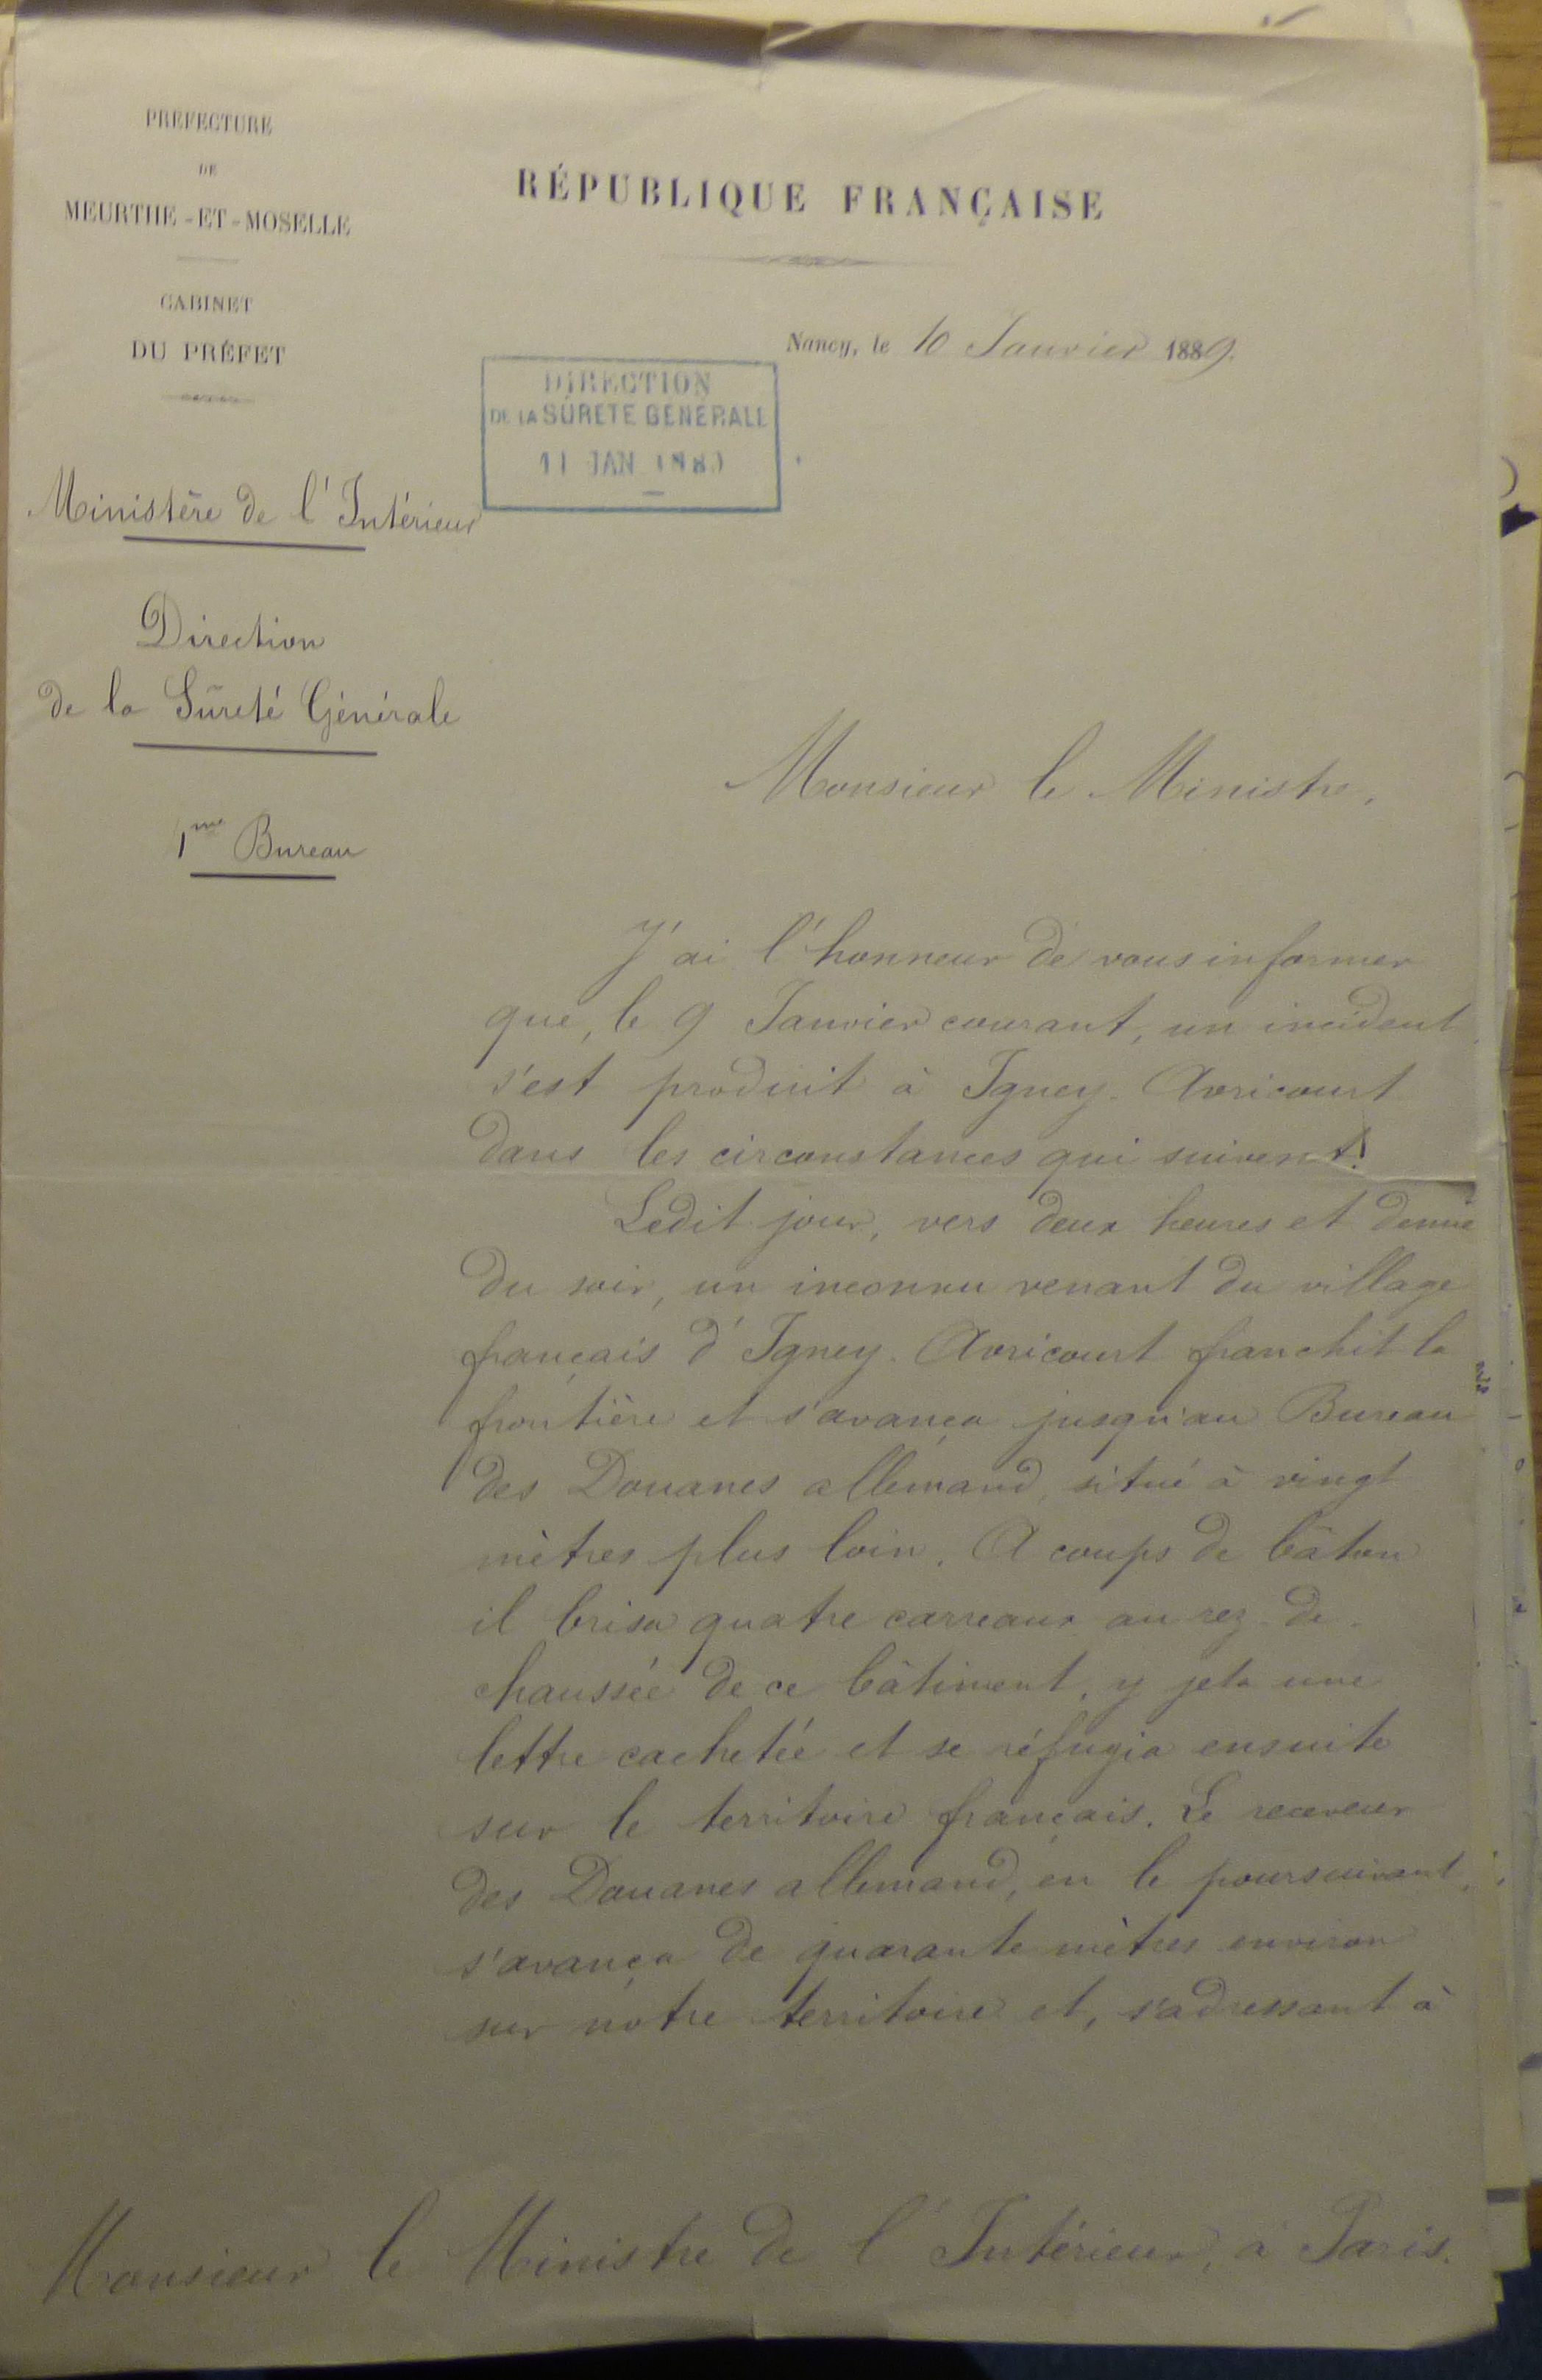 PRÉFECTURE
DE
MEURTHE-ET-MOSELLE
CABINET
DU PRÉFET
RÉPUBLIQUE FRANÇAISE
Nancy, le 10 Janvier 1889.
DIRECTION
DE LA SÛRETÉ GÉNÉRALE
11 JAN 1889
Ministère de l'Intérieur
Direction
de la Sûreté Générale
1me Bureau
Monsieur le Ministre,
J'ai l'honneur de vous informer
que, le 9 Janvier courant, un incident
s'est produit à Igney-Avricourt
dans les circonstances qui suivent:
Ledit jour, vers deux heures et demie
du soir, un inconnu venant du village
français d'Igney-Avricourt franchit la
frontière et s'avança jusqu'au Bureau
des Douanes allemand, situé à vingt
mètres plus loin. A coups de bâton
il brisa quatre carreaux au rez-de-
chaussée de ce bâtiment, y jeta une
lettre cachetée et se réfugia ensuite
sur le territoire français. Le receveur
des Douanes allemand, en le poursuivant,
s'avança de quarante mètres environ
sur notre territoire et, s'adressant à
Monsieur le Ministre de l'Intérieur, à Paris.